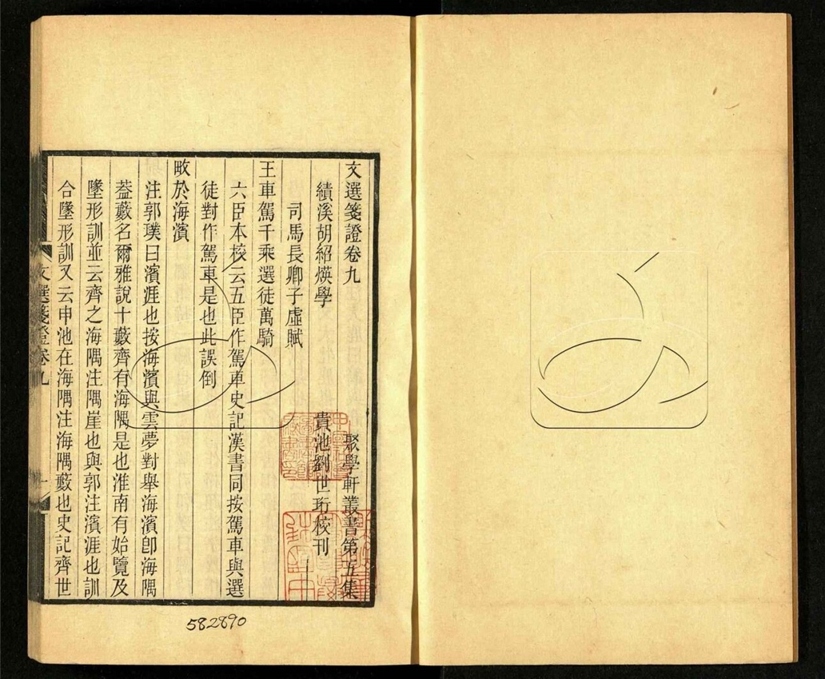 文選箋證卷九
聚學軒叢書第五集
績溪胡紹煐學
貴池劉世珩校刊
司馬長卿子虛賦
王車駕千乘選徒萬騎
六臣本校云五臣作駕車史記漢書同按駕車與選
徒對作駕車是也此誤倒
畋於海濱
注郭璞曰濱涯也按海濱與雲夢對舉海濱卽海隅
葢藪名爾雅說十藪齊有海隅是也淮南有始覽及
墬形訓並云齊之海隅注隅崖也與郭注濱涯也訓
合墬形訓又云申池在海隅注海隅藪也史記齊世
文選箋證卷九
一
582890